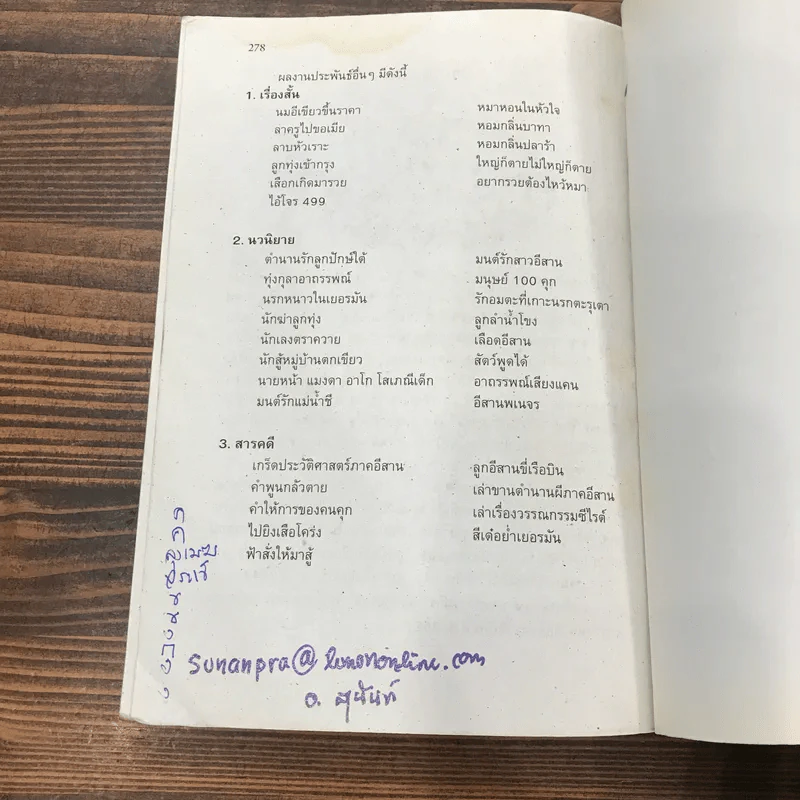 278
ผลงานประพันธ์อื่นๆ มีดังนี้
1. เรื่องสั้น
นมอีเขียวขึ้นราคา หมาหอนในหัวใจ
ลาครูไปขอเมีย หอมกลิ่นบาทา
ลาบหัวเราะ หอมกลิ่นปลาร้า
ลูกทุ่งเข้ากรุง ใหญ่ก็ตายไม่ใหญ่ก็ตาย
เสือกเกิดมารวย อยากรวยต้องไหว้หมา
ไอ้โจร 499
2. นวนิยาย
ตำนานรักลูกปักษ์ใต้ มนต์รักสาวอีสาน
ทุ่งกุลาอาถรรพณ์ มนุษย์ 100 คุก
นรกหนาวในเยอรมัน รักอมตะที่เกาะนรกตะรุเตา
นักฆ่าลูกทุ่ง ลูกลำน้ำโขง
นักเลงตราควาย เลือดอีสาน
นักสู้หมู่บ้านตกเขียว สัตว์พูดได้
นายหน้า แมงดา อาโก โสเภณีเด็ก อาถรรพณ์เสียงแคน
มนต์รักแม่น้ำชี อีสานพเนจร
3. สารคดี
เกร็ดประวัติศาสตร์ภาคอีสาน ลูกอีสานขี่เรือบิน
คำพูนกลัวตาย เล่าขานตำนานผีภาคอีสาน
คำให้การของคนคุก เล่าเรื่องวรรณกรรมซีไรต์
ไปยิงเสือโคร่ง สีเด๋อย่ำเยอรมัน
ฟ้าสั่งให้มาสู้
sunanpra@lemononline.com
อ. สุนันท์